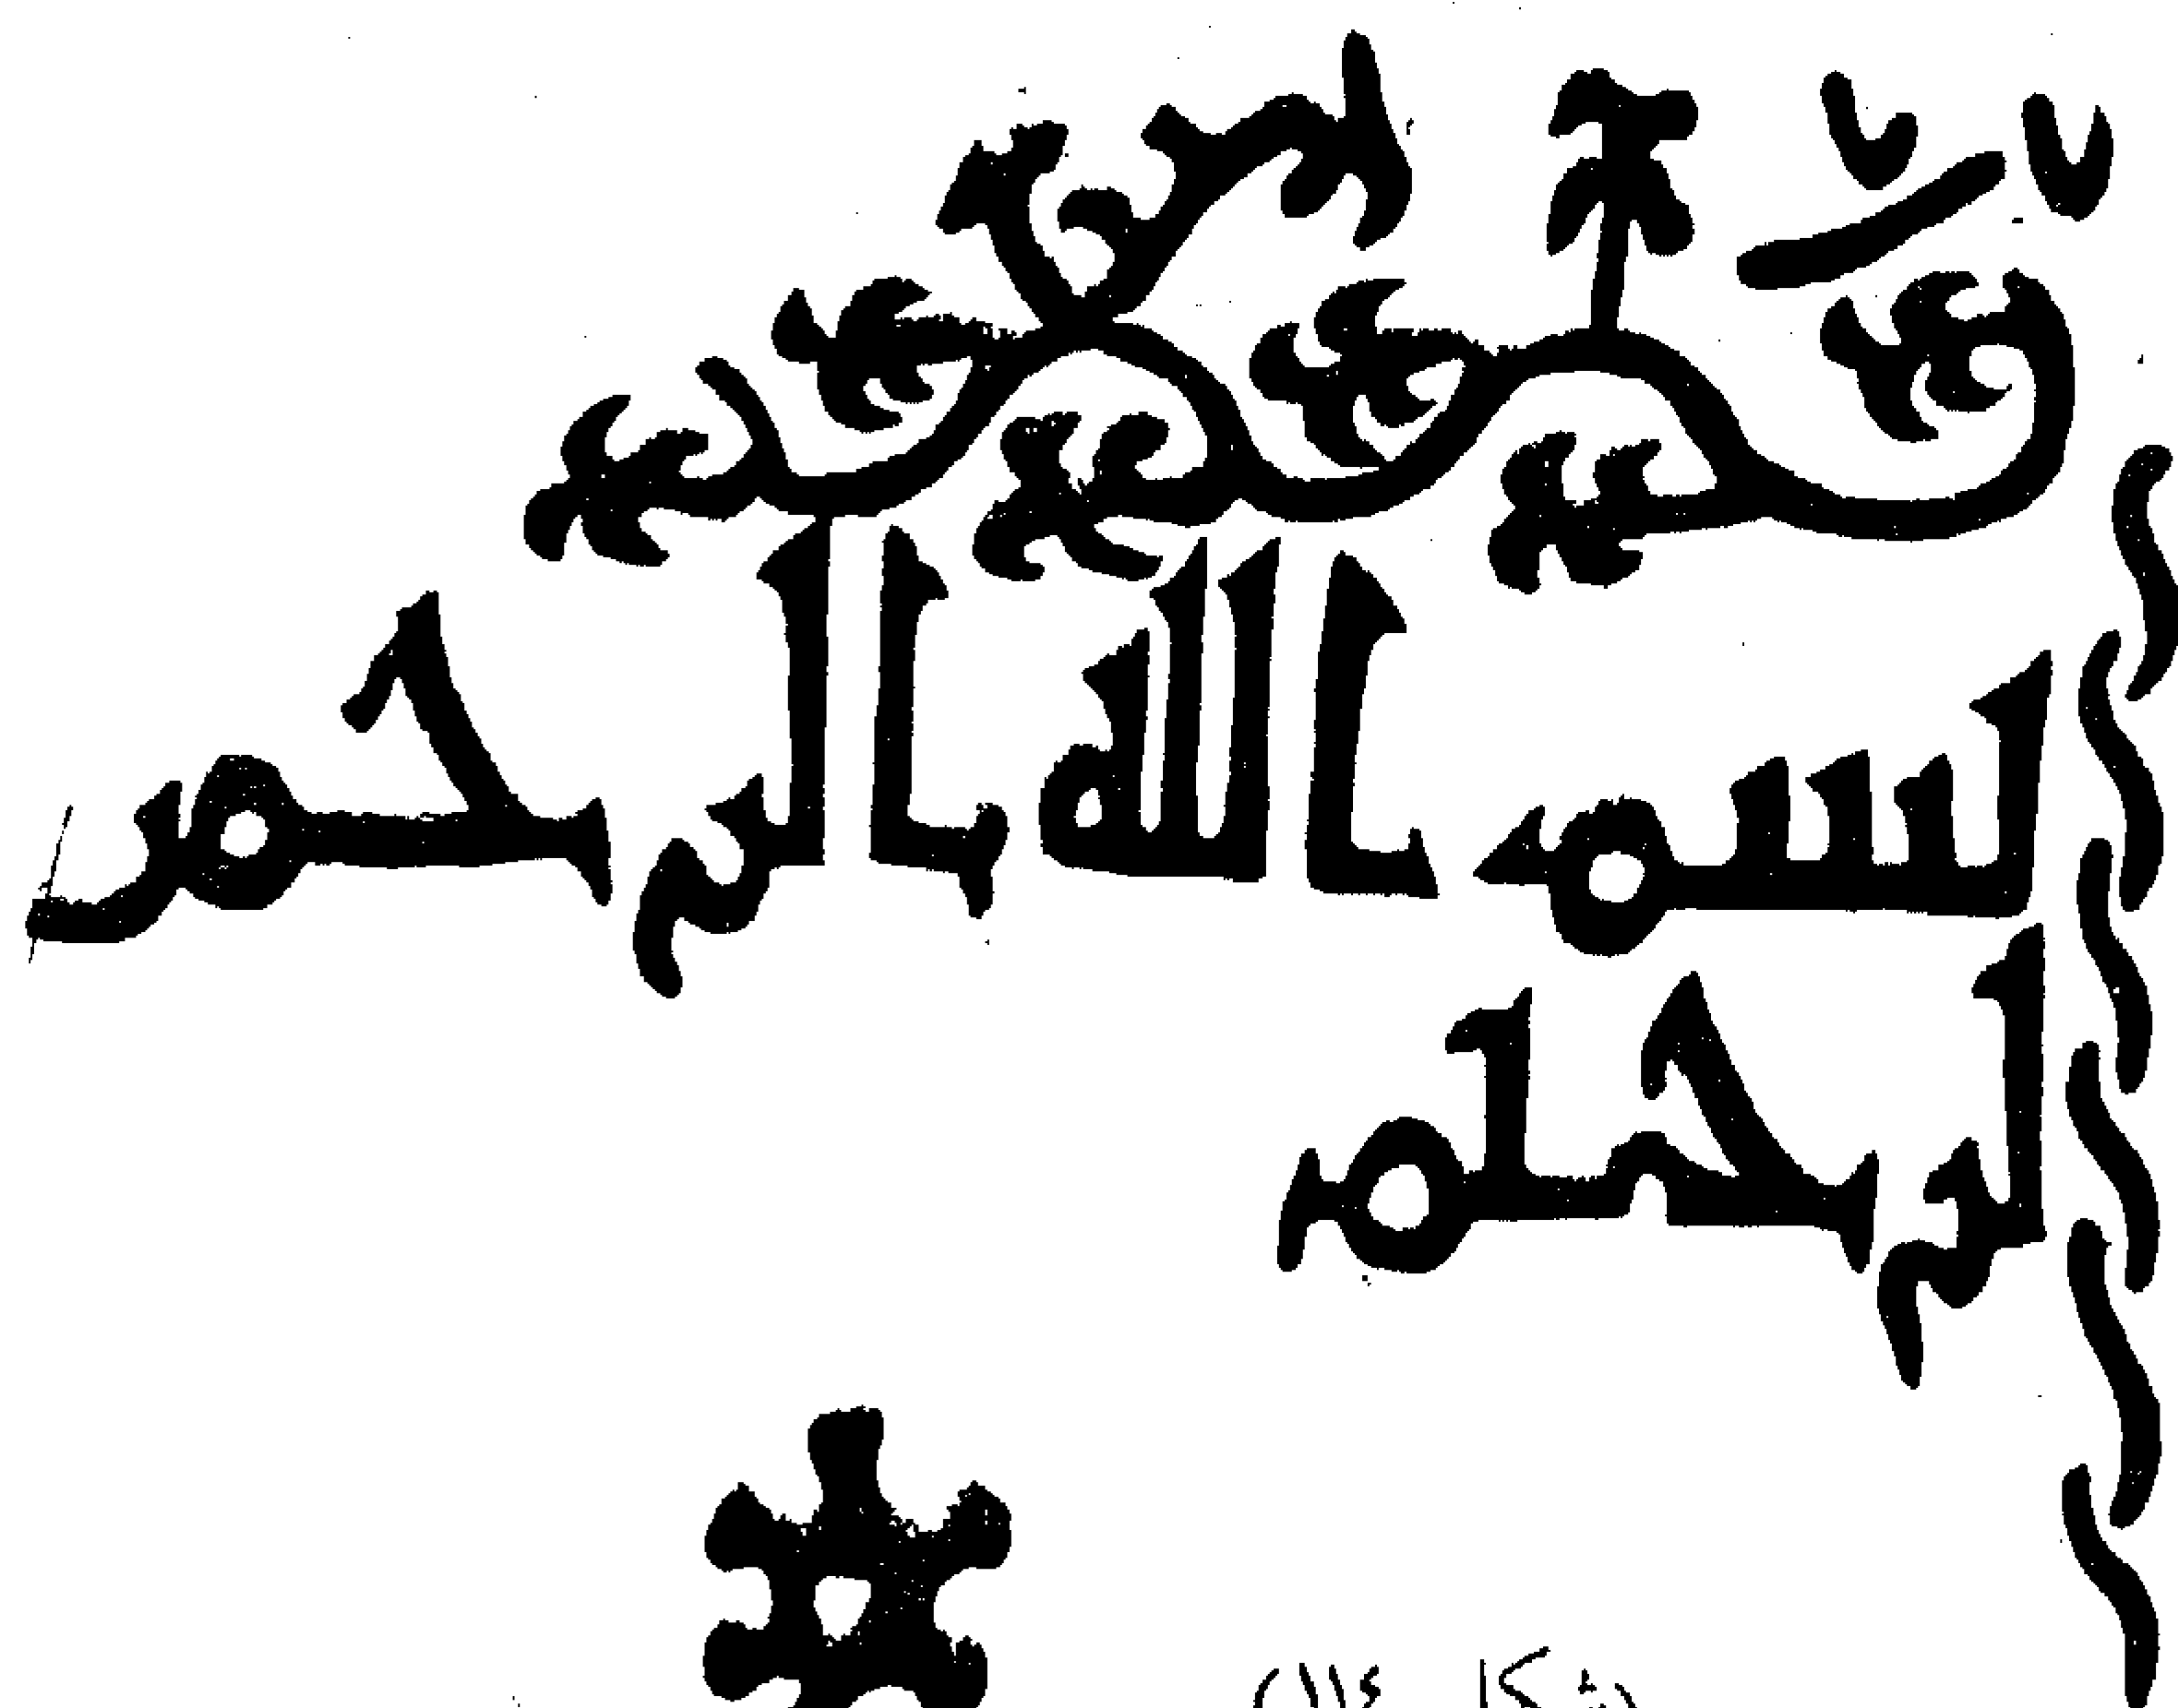 بسم الله الرحمن
الرحيم
(شكل ١١٤)